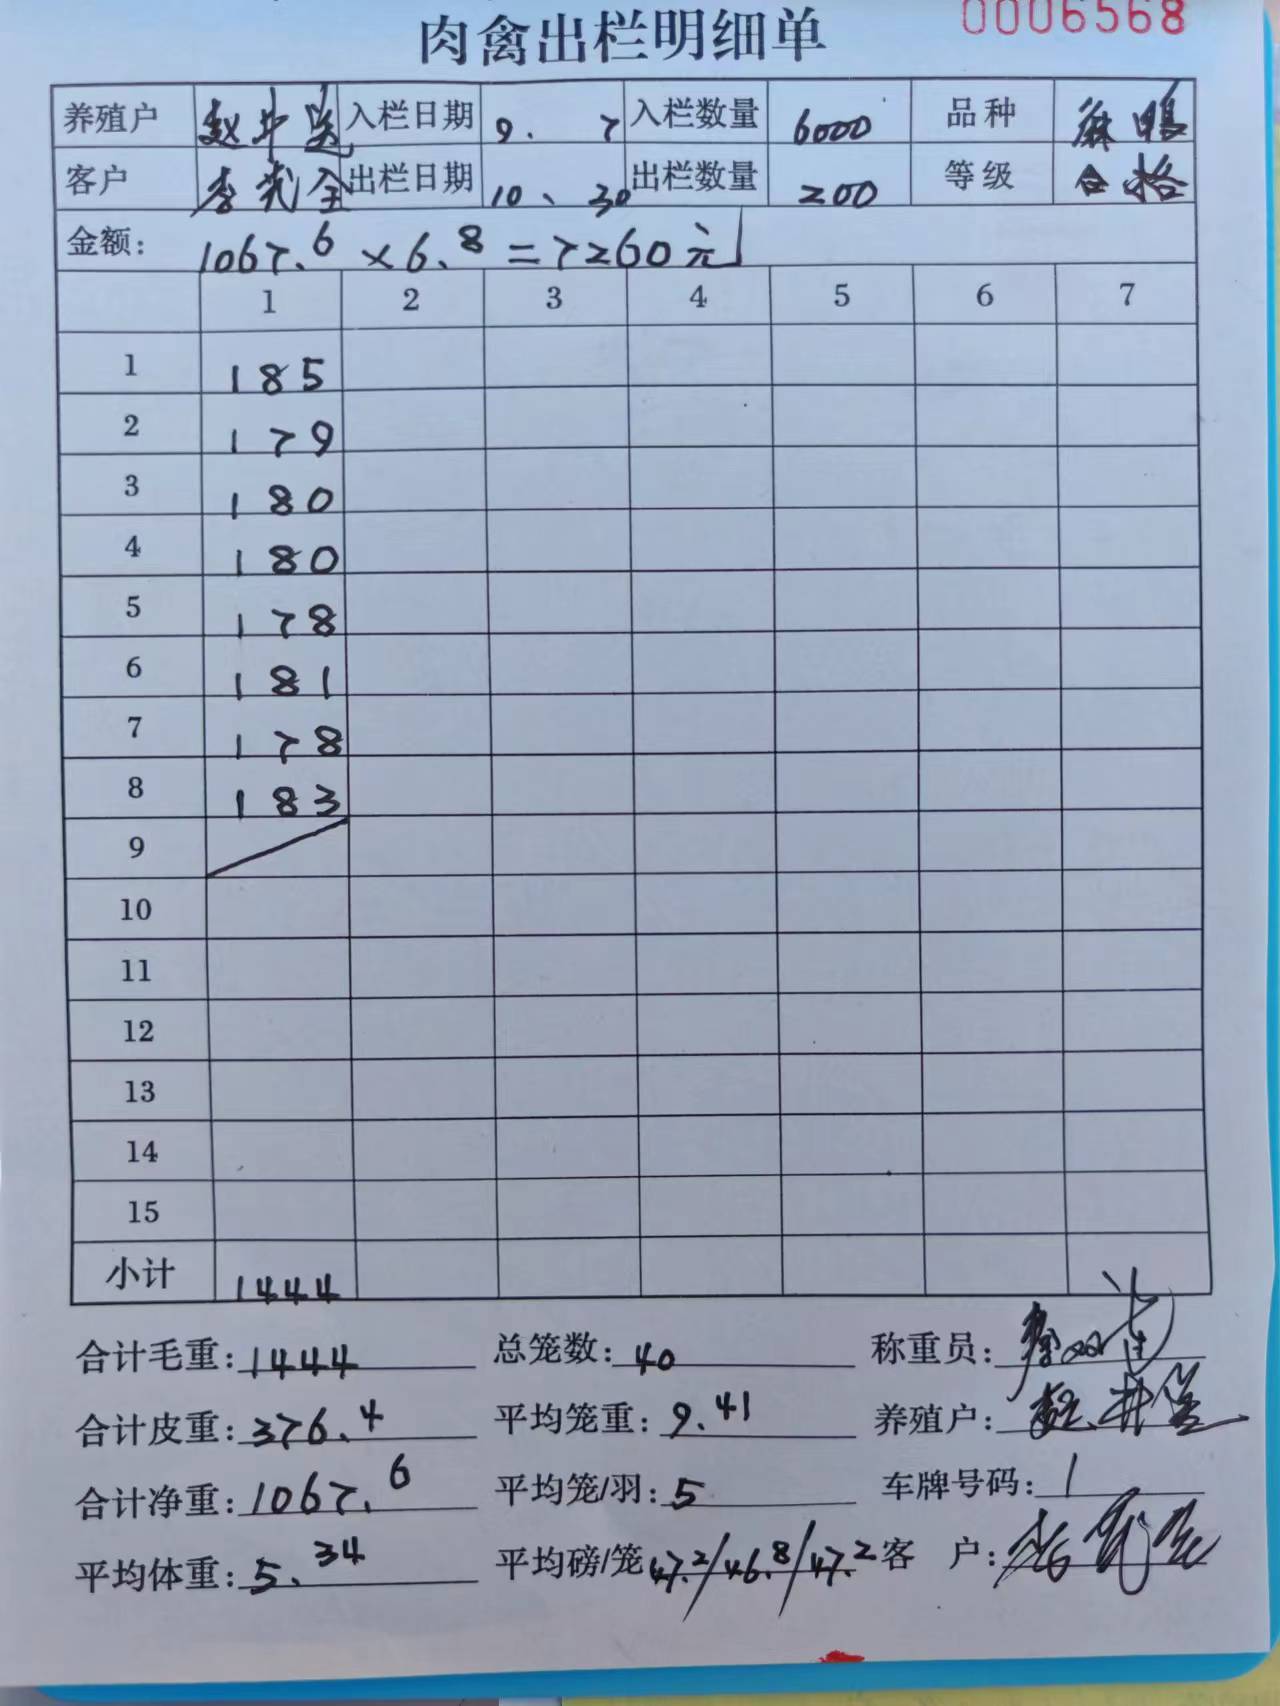 0006568
肉禽出栏明细单
养殖户 赵井选 入栏日期 9. 7 入栏数量 6000 品种 麻鸭
客户 李光全 出栏日期 10、30 出栏数量 200 等级 合格
金额: 1067.6×6.8=7260元
1 2 3 4 5 6 7
1 185
2 179
3 180
4 180
5 178
6 181
7 178
8 183
9
10
11
12
13
14
15
小计 1444
合计毛重:1444 总笼数:40 称重员:
合计皮重:376.4 平均笼重:9.41 养殖户:
合计净重:1067.6 平均笼/羽:5 车牌号码:1
平均体重:5.34 平均磅/笼 47.2/46.8/47.2 客 户: